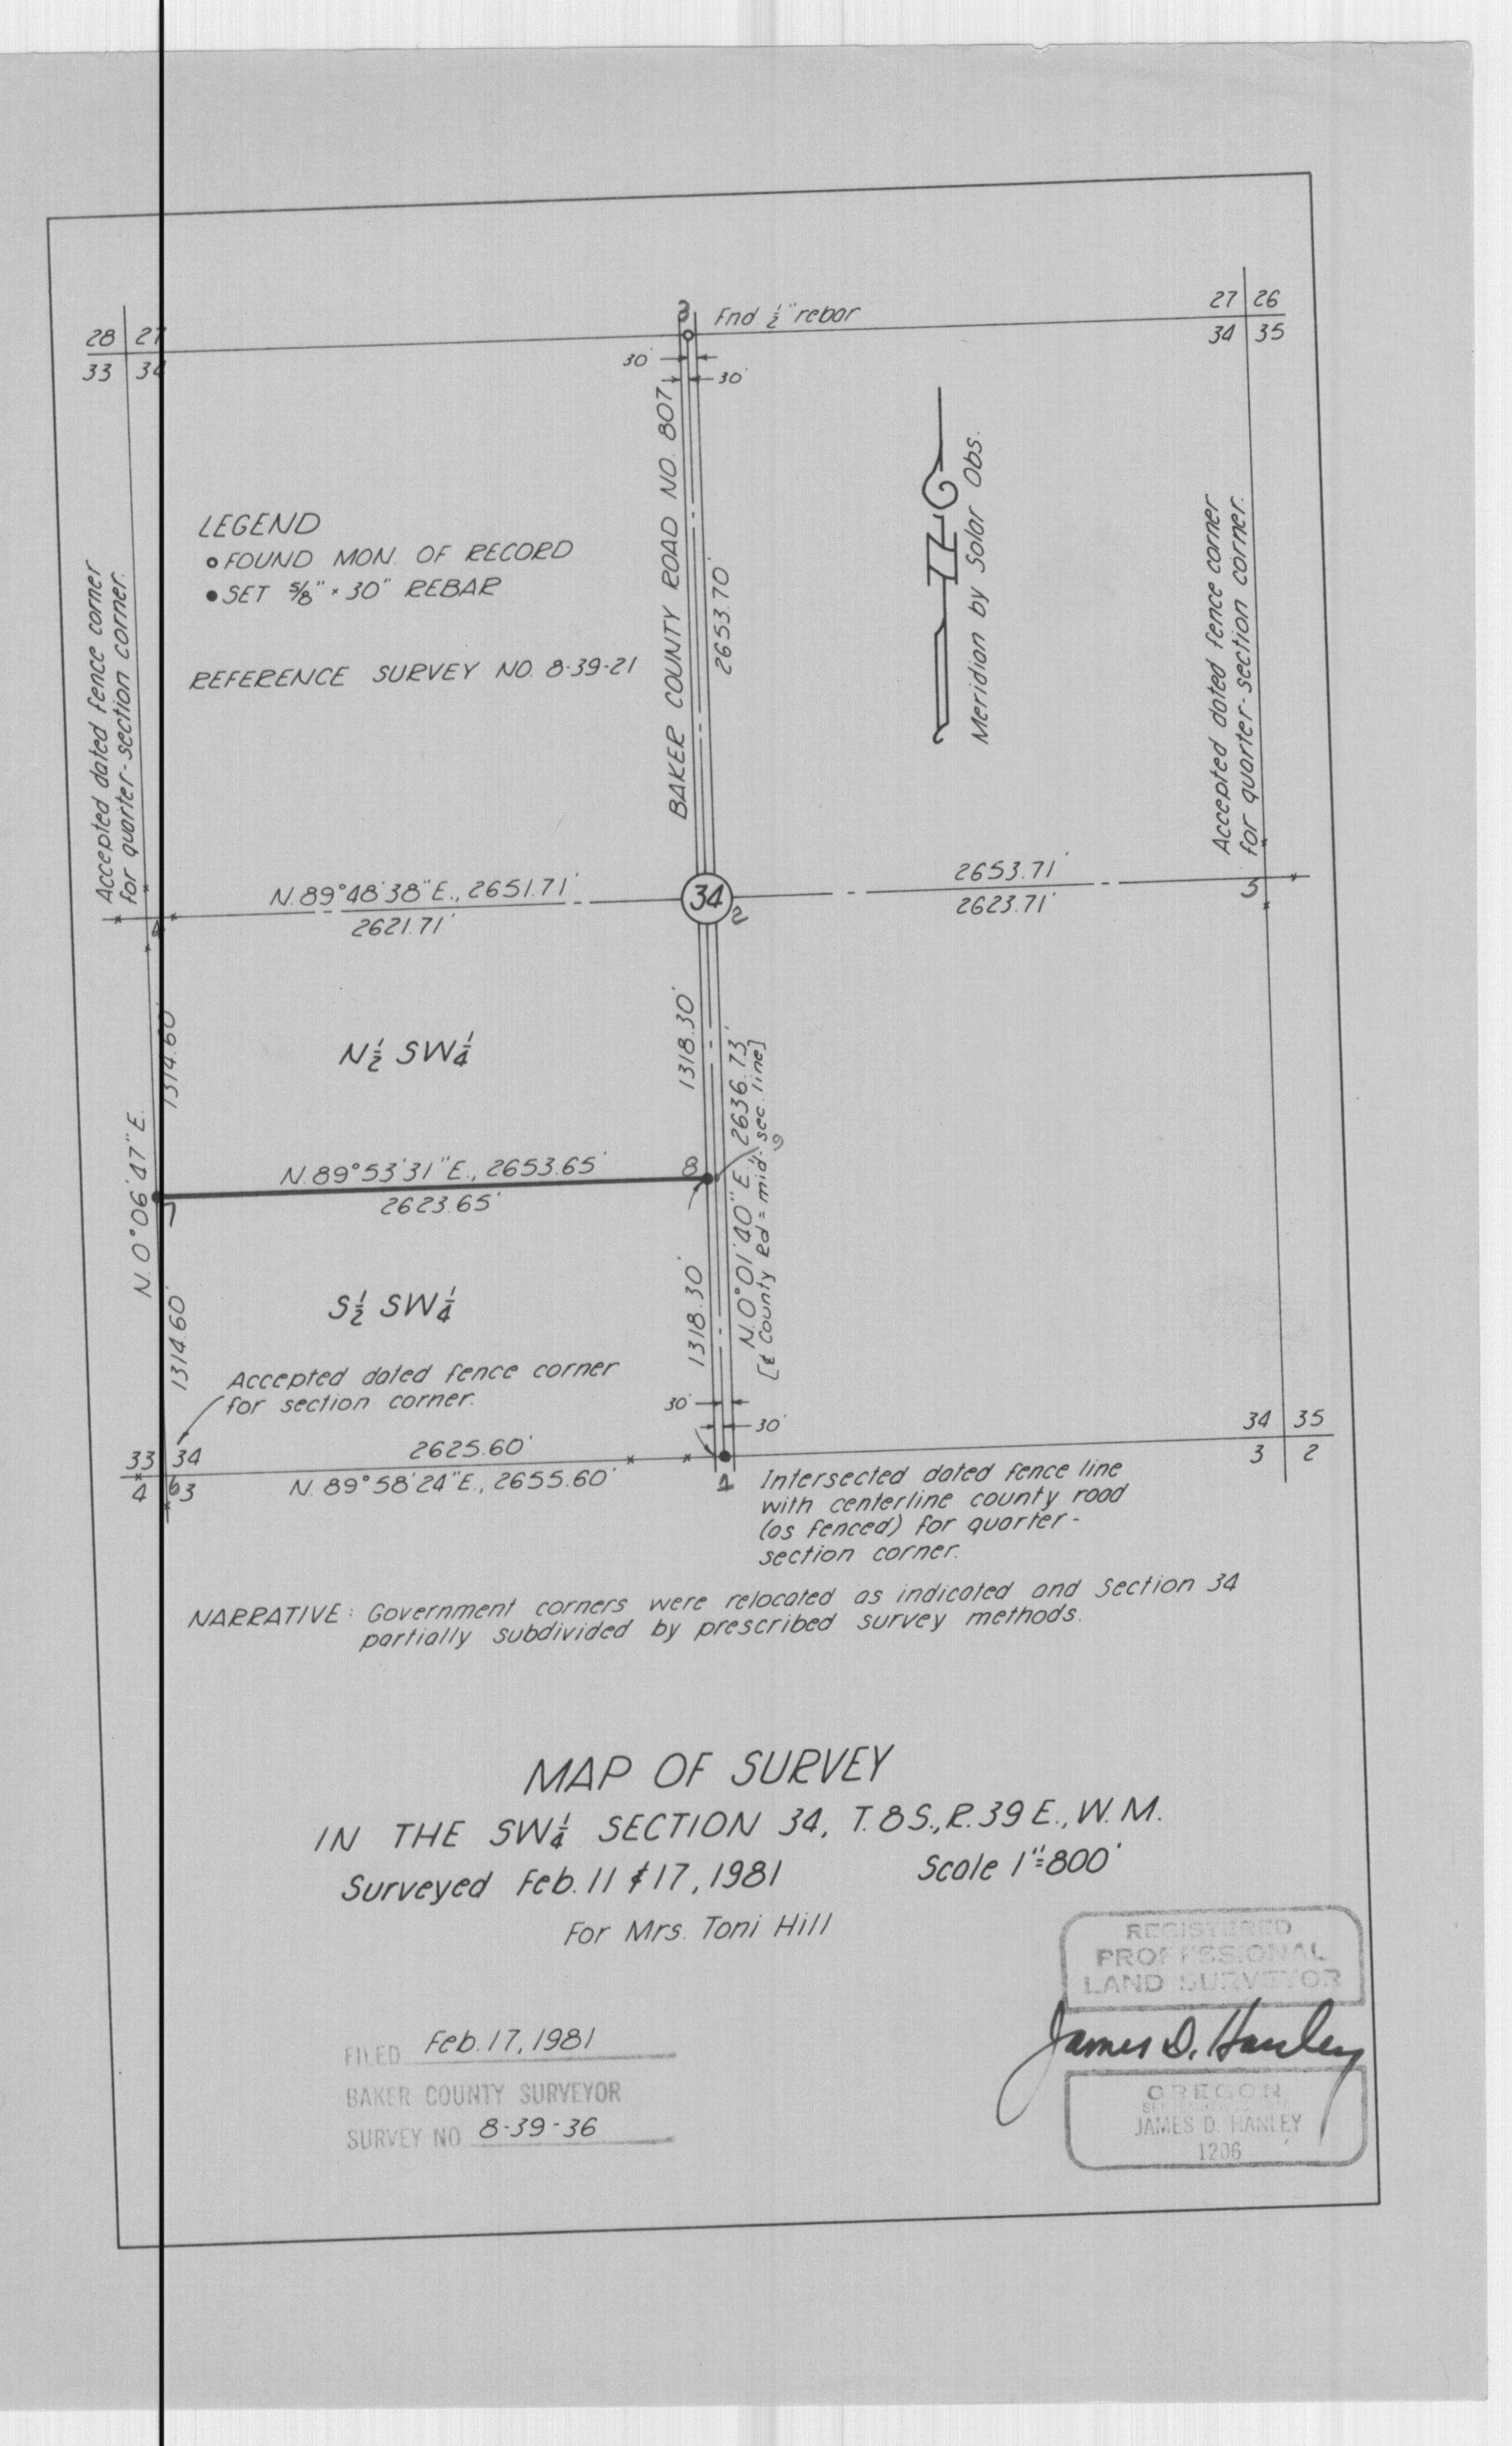 28 27
33 34
3 Fnd. ½" rebar
27 26
34 35
30'
30'
BAKER COUNTY ROAD NO. 807
2653.70'
Meridian by Solar Obs.
LEGEND
FOUND MON. OF RECORD
SET 5/8" × 30" REBAR
REFERENCE SURVEY NO. 8-39-21
Accepted dated fence corner
for quarter-section corner.
Accepted dated fence corner
for quarter-section corner.
N. 89°48'38" E., 2651.71'
2621.71'
34
2
2653.71'
2623.71'
5
1314.60'
N½ SW¼
1318.30'
N. 0°01'40" E., 2636.73'
[℄ County Rd = mid-sec. line]
9
N. 0°06'47" E.
N. 89°53'31" E., 2653.65'
2623.65'
8
7
S½ SW¼
1314.60'
1318.30'
Accepted dated fence corner
for section corner.
30'
30'
33 34
4 3
6
2625.60'
N. 89°58'24" E., 2655.60'
1
34 35
3 2
Intersected dated fence line
with centerline county road
(as fenced) for quarter-
section corner.
NARRATIVE: Government corners were relocated as indicated and Section 34
partially subdivided by prescribed survey methods.
MAP OF SURVEY
IN THE SW¼ SECTION 34, T. 8 S., R. 39 E., W. M.
Surveyed Feb. 11 & 17, 1981 Scale 1"=800'
For Mrs. Toni Hill
FILED Feb. 17, 1981
BAKER COUNTY SURVEYOR
SURVEY NO. 8-39-36
REGISTERED
PROFESSIONAL
LAND SURVEYOR
James D. Hanley
OREGON
JAMES D. HANLEY
1206